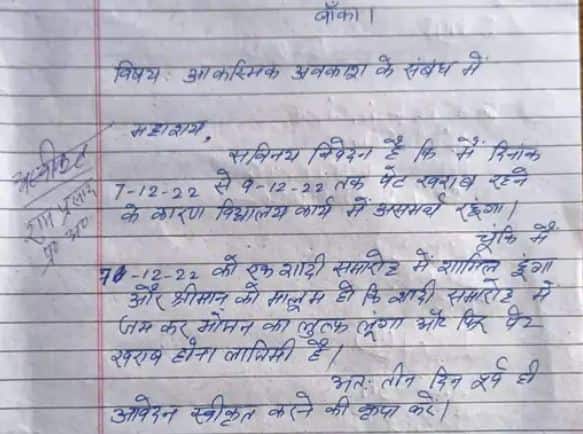 बाँका।
विषय: आकस्मिक अवकाश के संबंध में
महाशय,
सविनय निवेदन है कि मैं दिनांक
7-12-22 से 9-12-22 तक पेट खराब रहने
के कारण विद्यालय कार्य में असमर्थ रहूंगा।
चूंकि मैं
-12-22 को एक शादी समारोह में शामिल हूंगा
और श्रीमान को मालूम हो कि शादी समारोह में
जम कर भोजन का लुत्फ लूंगा और फिर पेट
खराब होना लाजिमी है।
अतः तीन दिन पूर्व ही
आवेदन स्वीकृत करने की कृपा करें।
प्रसाद
प्र० अ०